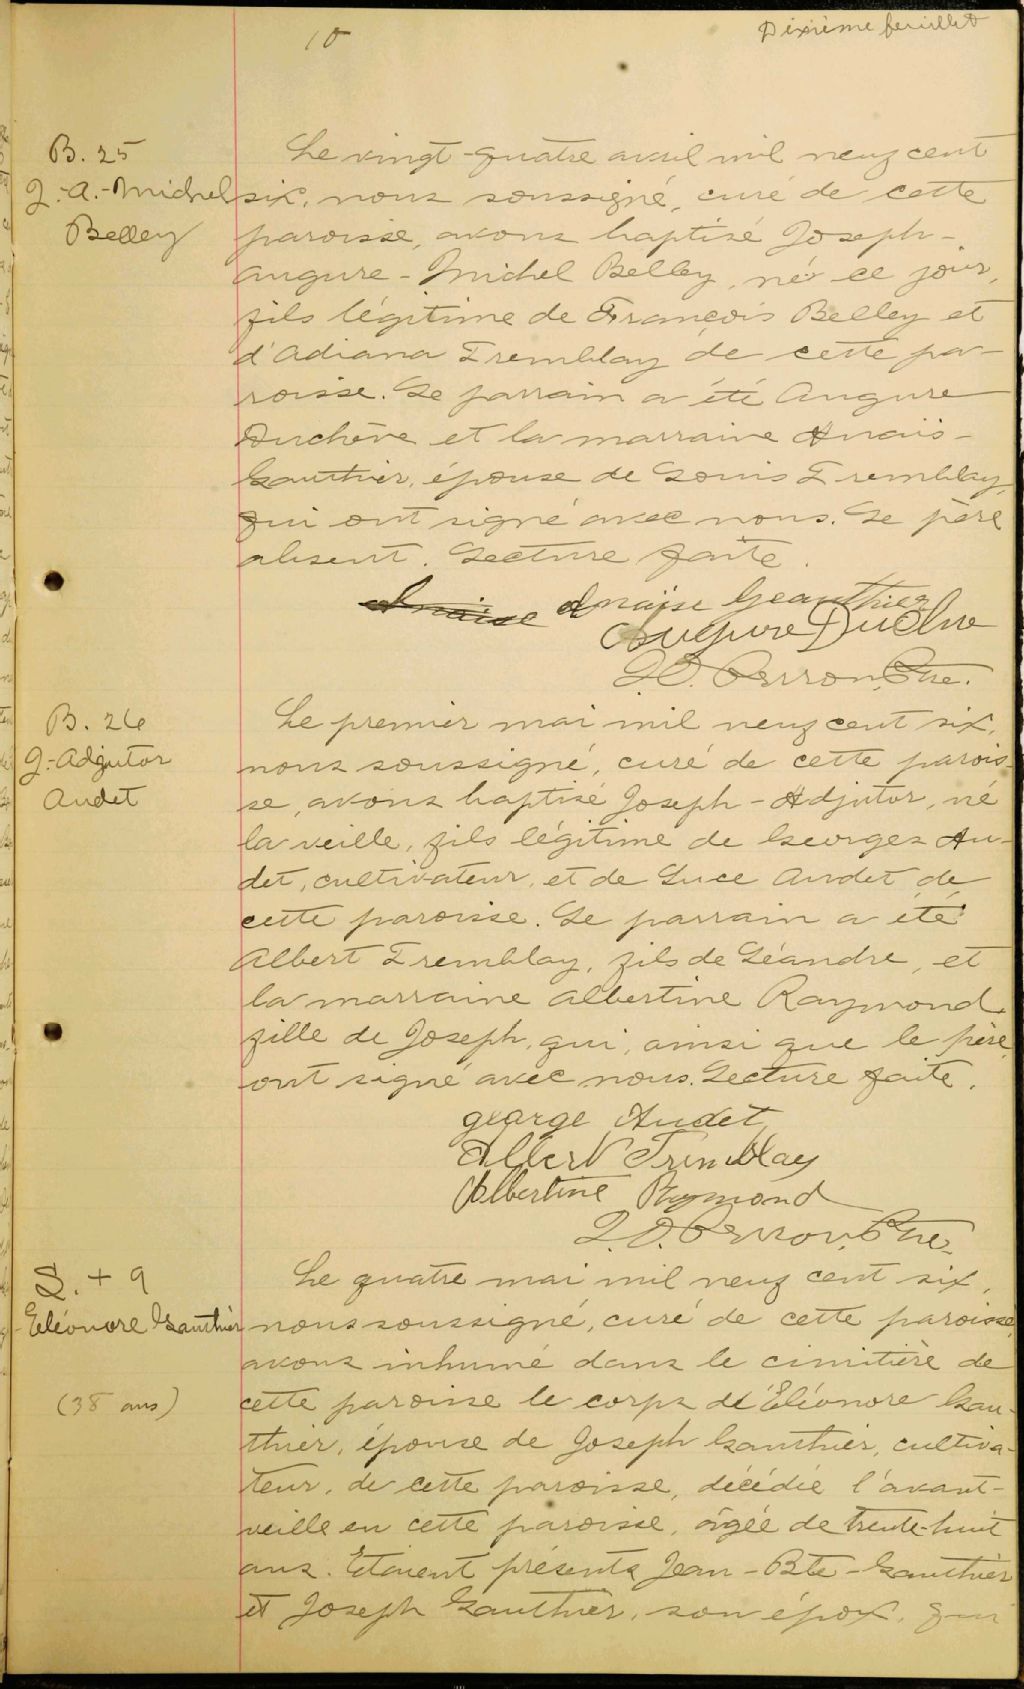 10
Dixième feuillet
B. 25
J.-A.-Michel
Belley
Le vingt-quatre avril mil neuf cent
six, nous soussigné, curé de cette
paroisse, avons baptisé Joseph-
Augure-Michel Belley, né ce jour,
fils légitime de François Belley et
d'Adiana Tremblay de cette pa-
roisse. Le parrain a été Augure
Duchêne et la marraine Anaïs-
Gauthier, épouse de Louis Tremblay,
qui ont signé avec nous. Le père
absent. Lecture faite.
Anaise Anaïse Geauthier
Augure Duchne
J.O. Perron, Ptre.
B. 26
J.-Adjutor
Audet
Le premier mai mil neuf cent six,
nous soussigné, curé de cette parois-
se, avons baptisé Joseph-Adjutor, né
la veille, fils légitime de Georges Au-
det, cultivateur, et de Luce Audet de
cette paroisse. Le parrain a été
Albert Tremblay, fils de Léandre, et
la marraine Albertine Raymond
fille de Joseph, qui, ainsi que le père,
ont signé avec nous. Lecture faite.
george Audet
Albert Tremblay
Albertine Raymond
J.O. Perron, Ptre.
S. + 9
Eléonore Gauthier
(38 ans)
Le quatre mai mil neuf cent six,
nous soussigné, curé de cette paroisse,
avons inhumé dans le cimitière de
cette paroisse le corps de Eléonore Gau-
thier, épouse de Joseph Gauthier, cultiva-
teur, de cette paroisse, décédée l'avant-
veille en cette paroisse, âgée de trente-huit
ans. Etaient présents Jean-Bte-Gauthier
et Joseph Gauthier, son épox, qui